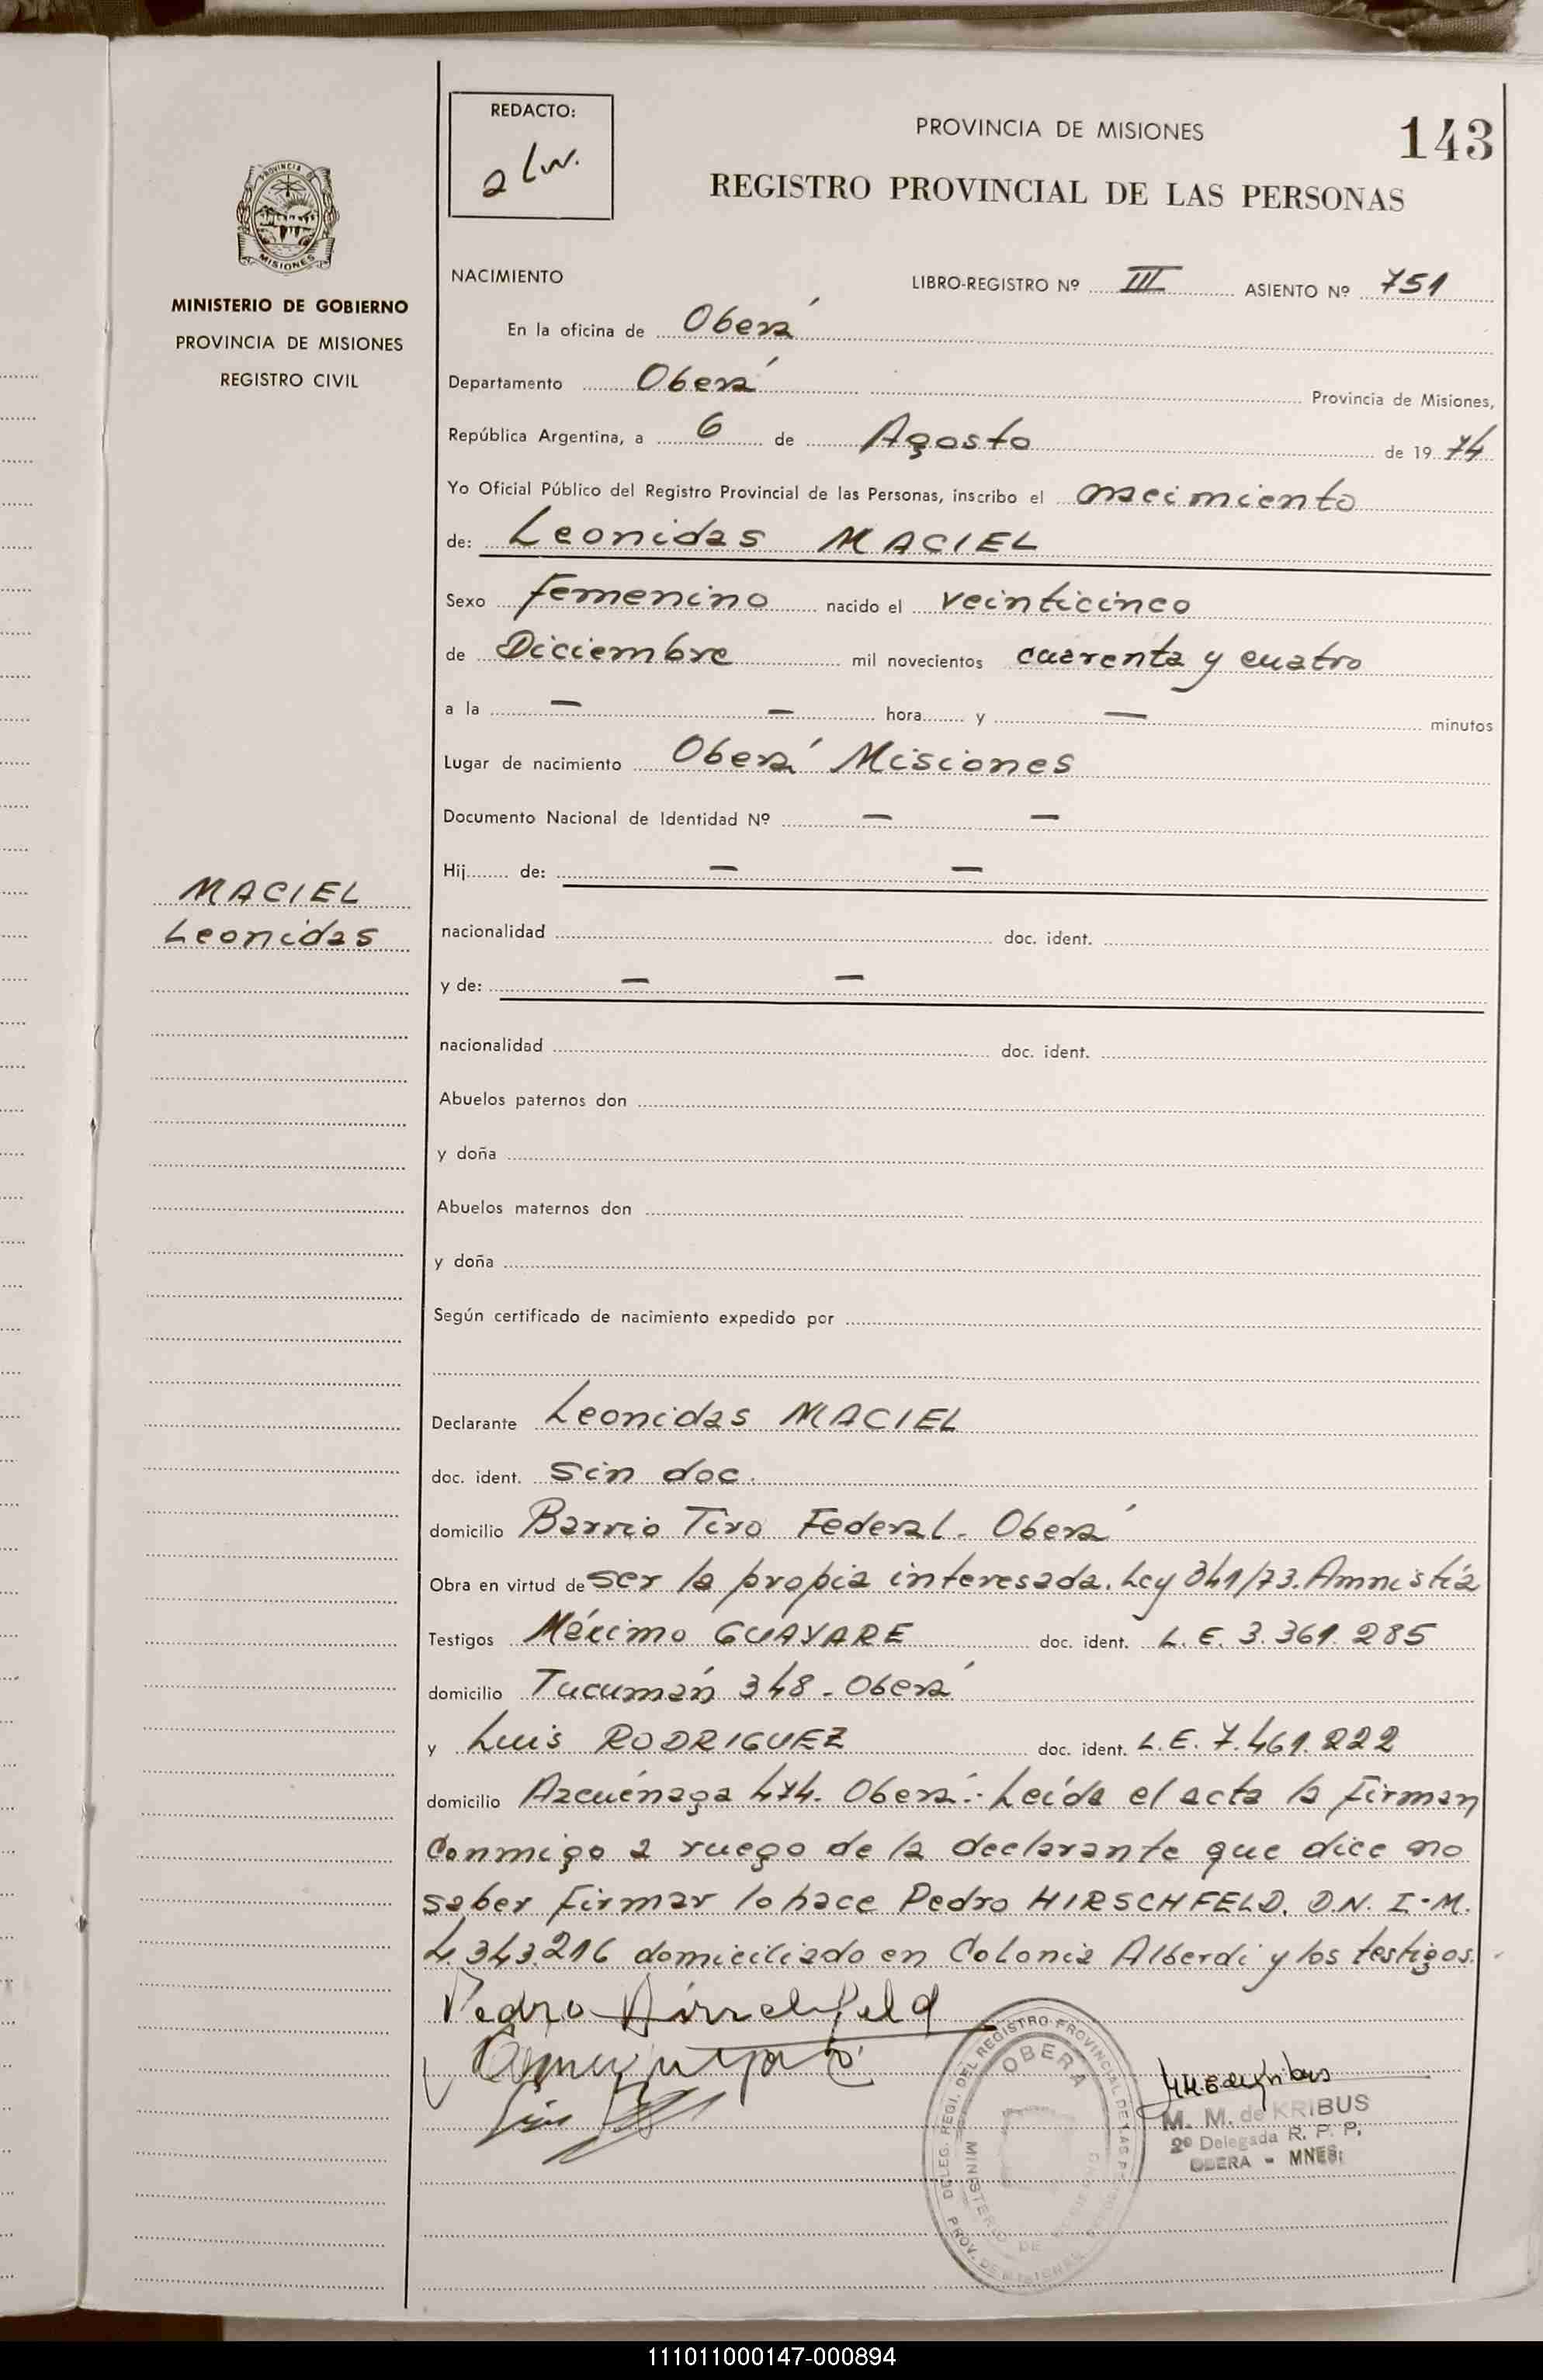 REDACTO:
PROVINCIA DE MISIONES
143
REGISTRO PROVINCIAL DE LAS PERSONAS
PROVINCIA DE
MISIONES
MINISTERIO DE GOBIERNO
PROVINCIA DE MISIONES
REGISTRO CIVIL
NACIMIENTO LIBRO-REGISTRO Nº III ASIENTO Nº 751
En la oficina de Oberá
Departamento Oberá Provincia de Misiones,
República Argentina, a 6 de Agosto de 1974
Yo Oficial Público del Registro Provincial de las Personas, inscribo el nacimiento
de: Leonidas MACIEL
Sexo Femenino nacido el veinticinco
de Diciembre mil novecientos cuarenta y cuatro
a la — — hora y — minutos
Lugar de nacimiento Oberá Misiones
Documento Nacional de Identidad Nº — —
Hij de: — —
MACIEL
Leonidas
nacionalidad doc. ident.
y de: — —
nacionalidad doc. ident.
Abuelos paternos don
y doña
Abuelos maternos don
y doña
Según certificado de nacimiento expedido por
Declarante Leonidas MACIEL
doc. ident. Sin doc.
domicilio Barrio Tiro Federal. Oberá
Obra en virtud de ser la propia interesada. Ley 341/73. Amnistía
Testigos Máximo GUAYARE doc. ident. L.E. 3.361.285
domicilio Tucumán 348 - Oberá
y Luis RODRIGUEZ doc. ident. L.E. 7.461.222
domicilio Azcuénaga 474. Oberá.: Leída el acta la firman
Conmigo a ruego de la declarante que dice no
saber firmar lo hace Pedro HIRSCHFELD. D.N. I-M.
4.343.216 domiciliado en Colonia Alberdi y los testigos.
Pedro Hirschfeld
DELEG. REGI. DEL REGISTRO PROVINCIAL DE LAS
OBERA
MINISTERIO DE
PROV. DE MISIONES
M. M. de KRIBUS
2º Delegada R. P. P.
OBERA - MNES.
111011000147-000894